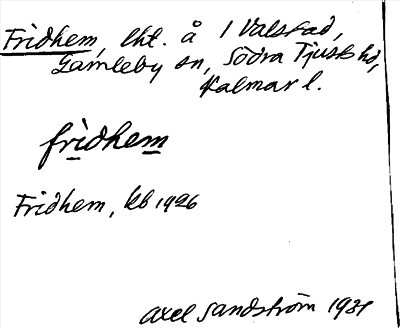 Fridhem, lht. å 1 Valstad,
Gamleby sn, Södra Tjusts hd,
Kalmar l.
fridhem
Fridhem, kb 1926
Axel Sandström 1931